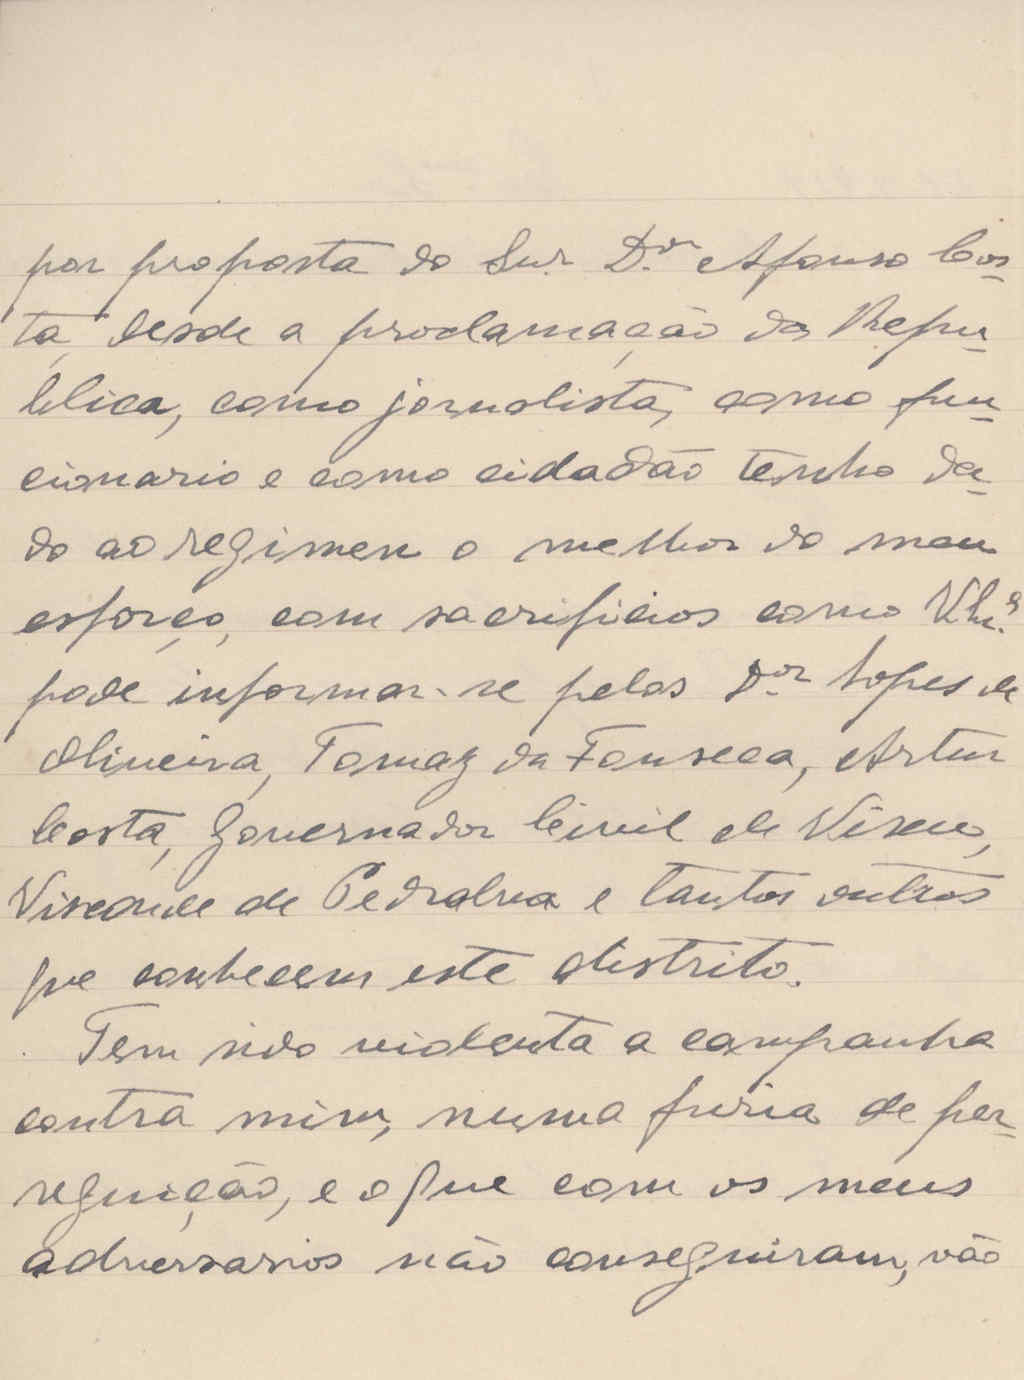 por proposta do Snr. Dr. Afonso Cos-
ta, desde a proclamação da Repu-
blica, como jornalista, como fun-
cionario e como cidadão tenho da-
do ao regimen o melhor do meu
esforço, com sacrificios como V.
pode informar-se pelos Dor Lopes de
Oliveira, Tomaz da Fonseca, Artur
Costa, Governador Civil de Viseu,
Visconde de Pedralva e tantos outros
que conhecem este distrito.
Tem sido violenta a campanha
contra mim, numa furia de per-
seguição, e o que com os meus
adversarios não conseguiram, vão